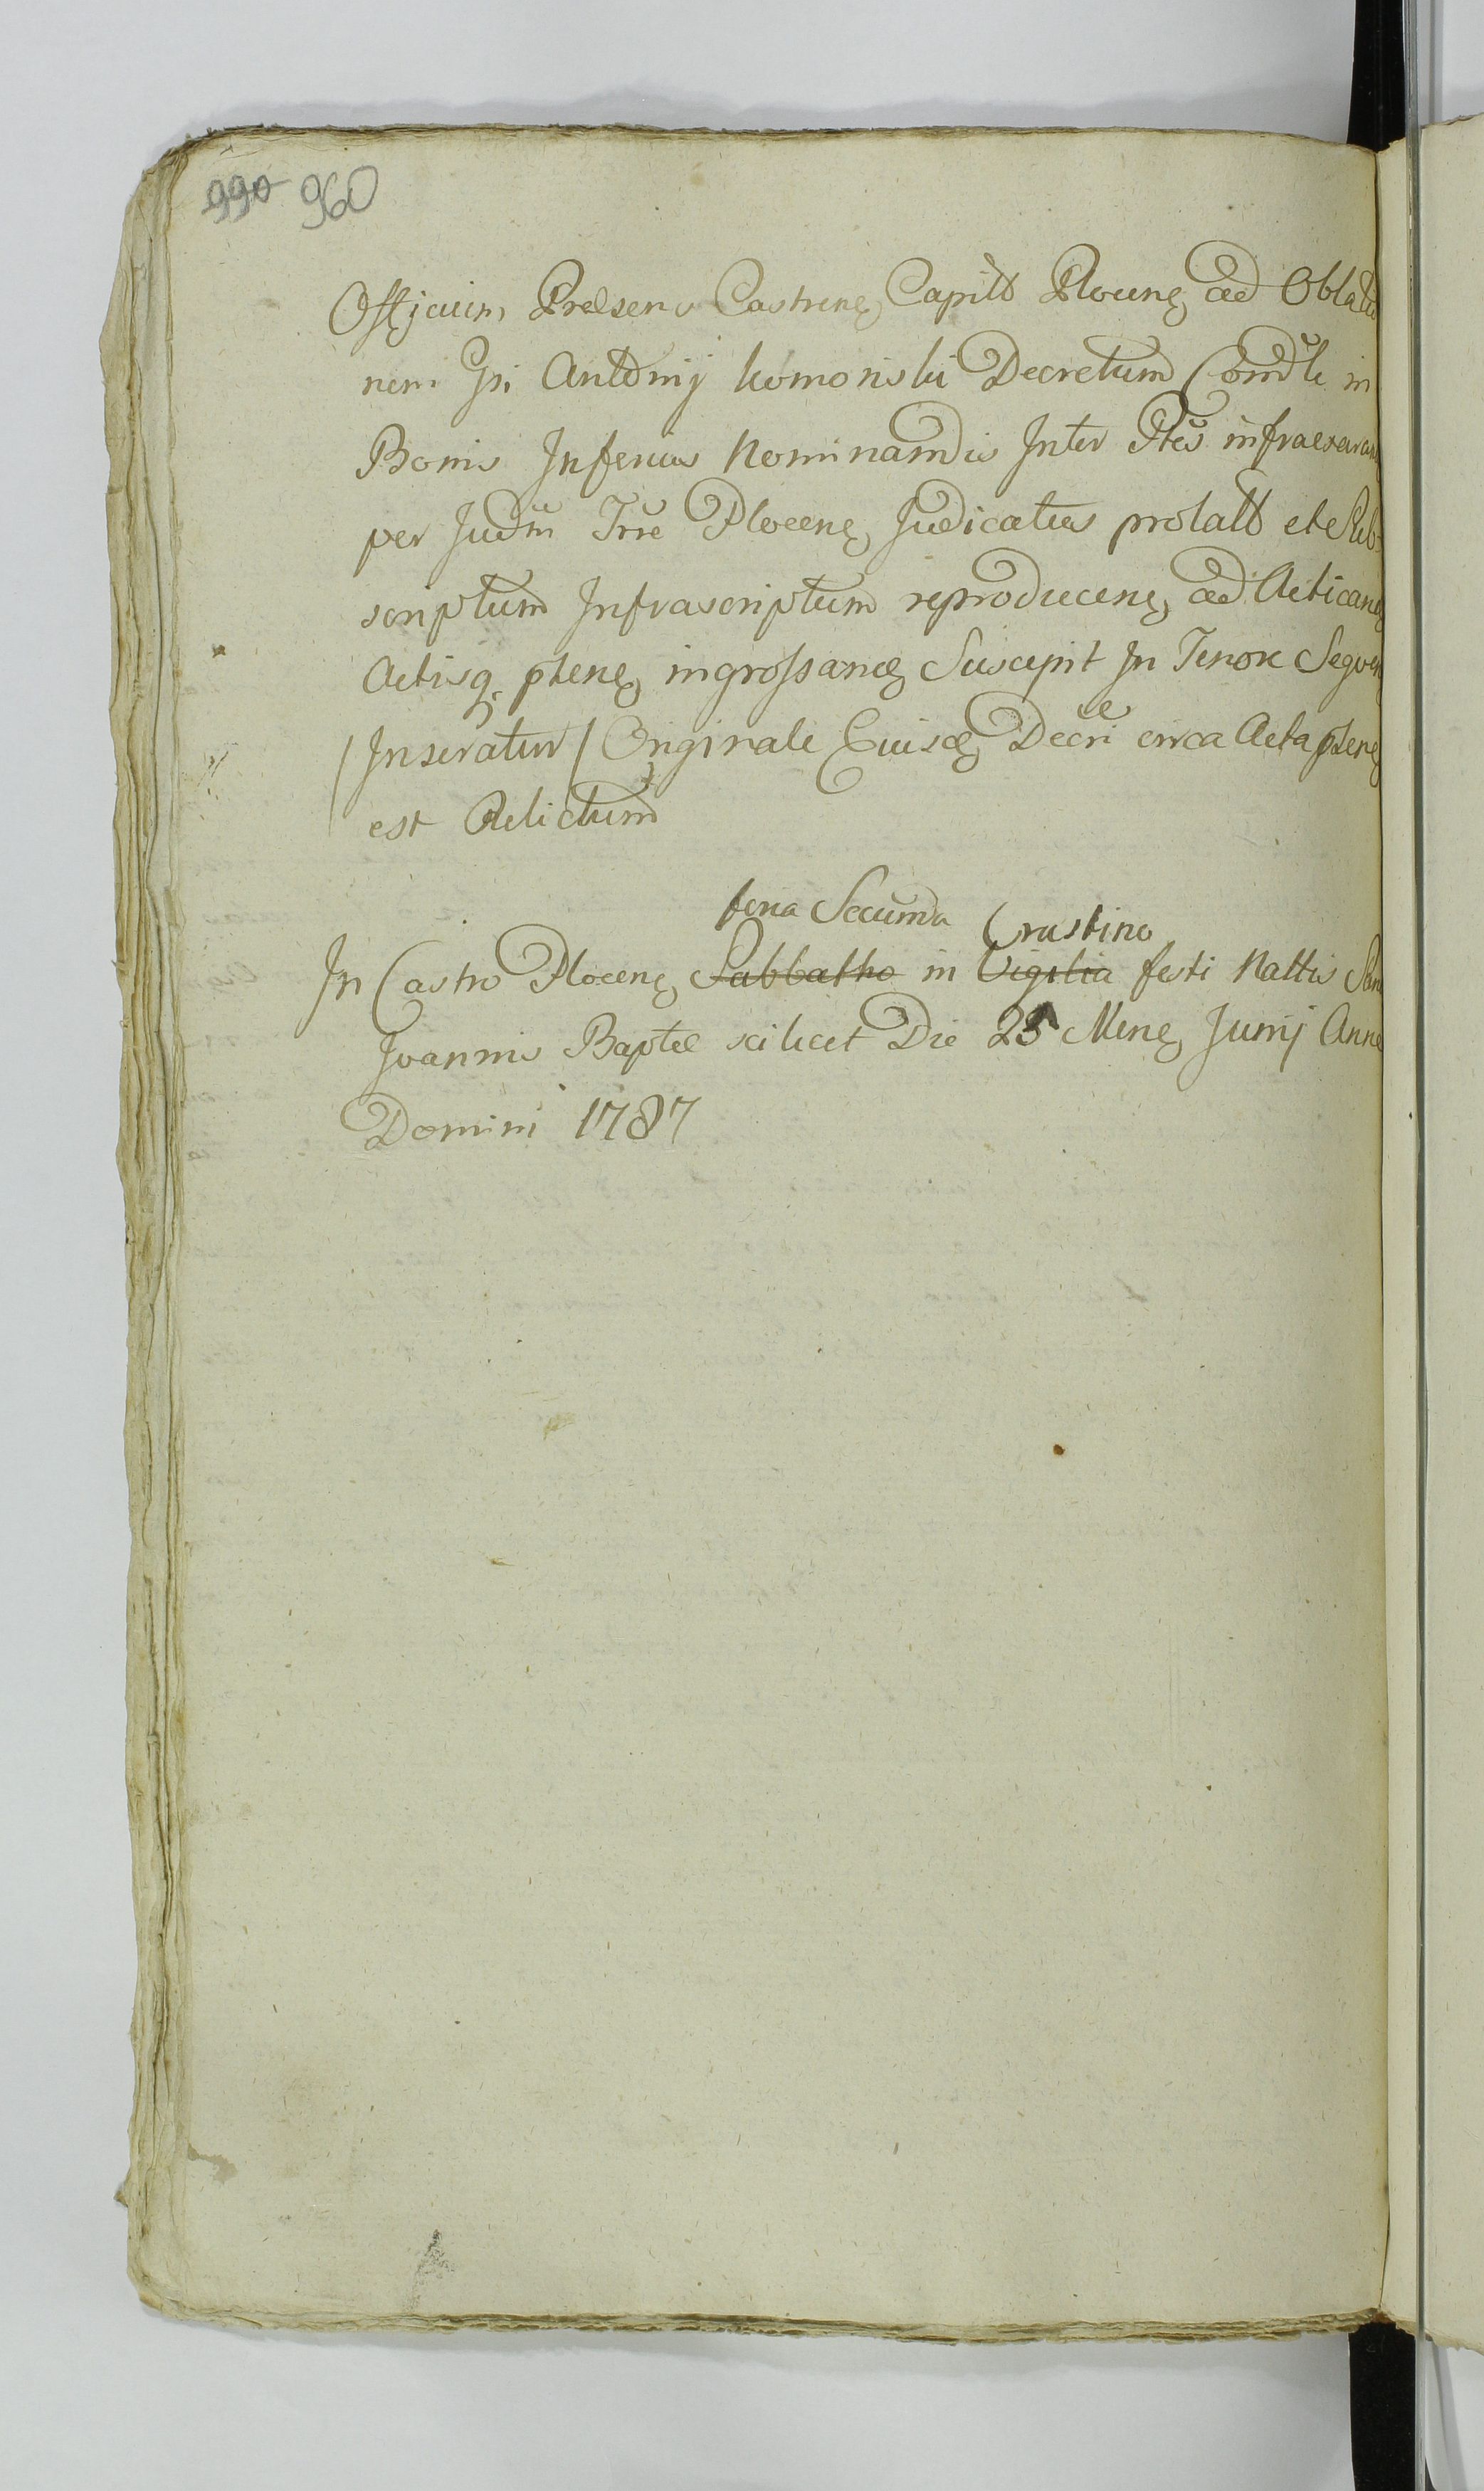 990 960
Officium Præsens Castrens Capitle Plocens ad Oblatio
nem Gsi Antonij Komoński Decretum Condle in
Bonis Inferius Nominandis Inter Ptes infraexaran
per Judm Trre Plocens Judicatus prolatt et Sub-
scriptum Infrascriptum reproducens ad Acticans
Actisq. ptens ingrossand Suscepit In Tenore Sequen
/Inseratur/ Originale Eiusd Decri circa Acta ptens
est Relictum
feria Secunda Crastino
In Castro Plocens Sabbatho in Vigilia festi Nattis San
Joannis Baptæ scilicet Die 25 Mens Junij Anno
Domini 1787